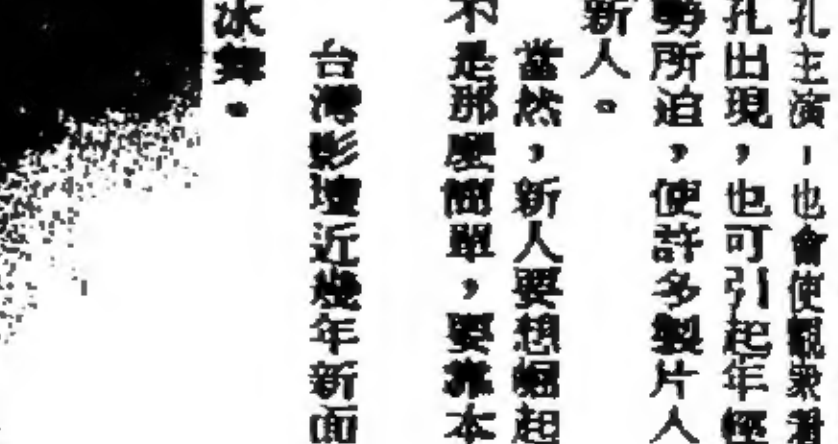 孔主演，也會使觀眾看
孔出現，也可引起年輕
勢所迫，使許多製片人
新人。
當然，新人要想崛起
不是那麼簡單，要靠本
台灣影壇近幾年新面
冰舞。